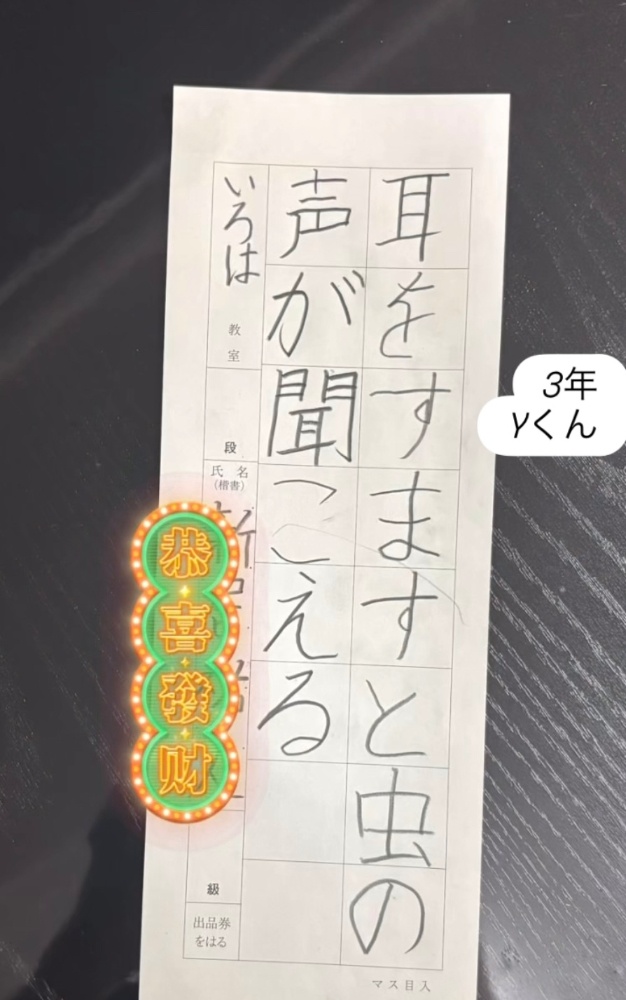 耳をすますと虫の
声が聞こえる
いろは
教室
段
氏名
(楷書)
級
出品券
をはる
マス目入
3年
Yくん
恭喜發财